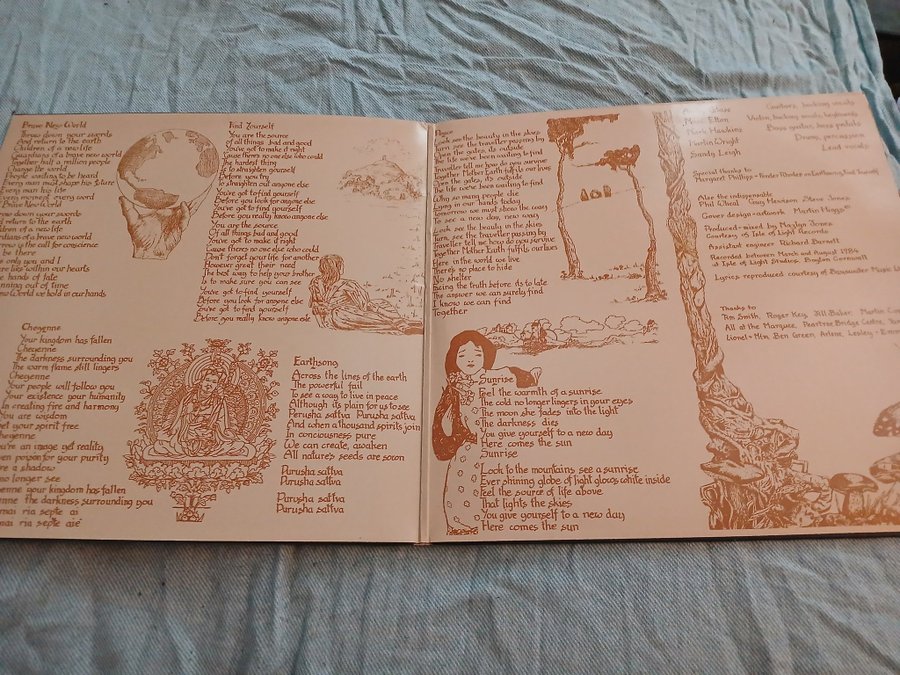 Brave New World
Throw down your swords
And return to the earth
Children of a new life
Guardians of a brave new world
Together half a million people
Change the world
People waiting to be heard
Every man must shape his future
Every man his life
Every moment every word
Brave New World
down your swords
return to the earth
of a new life
of a brave new world
is the call for conscience
be there
only you and I
lies within our hearts
hands of fate
out of time
New World we hold in our hands
Cheyenne
Your kingdom has fallen
Cheyenne
The darkness surrounding you
The warm flame still lingers
Cheyenne
Your people will follow you
Your existence your humanity
In creating fire and harmony
You are wisdom
your spirit free
Cheyenne
an image yet reality
poison for your purity
a shadow
no longer see
your kingdom has fallen
the darkness surrounding you
mai ria septe ai
mai ria septe aie
Find Yourself
You are the source
Of all things bad and good
You've got to make it right
Cause there's no one else who could
The hardest thing
Is to straighten yourself
Before you try
To straighten out anyone else
You've got to find yourself
Before you look for anyone else
You've got to find yourself
Before you really know anyone else
You are the source
Of all things bad and good
You've got to make it right
Cause there's no one else who could
Don't forget your life for another
However great their need
The best way to help your brother
Is to make sure you can see
You've got to find yourself
Before you look for anyone else
You've got to find yourself
Before you really know anyone else
Earthsong
Across the lines of the earth
The powerful fail
To see a way to live in peace
Although its plain for us to see
Perusha sattva Purusha sattva
And when a thousand spirits join
In conciousness pure
We can create, awaken
All natures seeds are sown
Purusha sattva
Purusha sattva
Purusha sattva
Purusha sattva
Look see the beauty in the skies
Turn, see the traveller passing by
Open the gates, its outside
The life we've been waiting to find
Traveller tell me how do you survive
Together Mother Earth fulfils our lives
Open the gates, its outside
The life we've been waiting to find
Why so many people die
Lying in our hands today
Tomorrow we must show the way
To see a new day, new ways
Look see the beauty in the skies
Turn, see the traveller passing by
Traveller tell me how do you survive
Together Mother Earth fulfils our lives
Here in the world we live
There's no place to hide
No shelter
Facing the truth before its to late
The answer we can surely find
I know we can find
Together
Sunrise
Feel the warmth of a sunrise
The cold no longer lingers in your eyes
The moon she fades into the light
The darkness dies
You give yourself to a new day
Here comes the sun
Sunrise
Look to the mountains see a sunrise
Ever shining globe of light glows white inside
Feel the source of life above
That lights the skies
You give yourself to a new day
Here comes the sun
Guitars, backing vocals
Elton Violin, backing vocals, keyboards
Mark Hawkins Bass guitar, bass pedals
Martin Wright Drums, percussion
Sandy Leigh Lead vocals
Special thanks to
Margaret Phillips
Alex the indispensable
Phil O'Neal Gary Davison Steve Jones
Cover design + artwork Martin
Produced + mixed by Martyn Jones
Courtesy of Isle of Light Records
Assistant engineer Richard Barnett
Recorded between March and August 1984
at Isle of Light Studios, Cornwall
Lyrics reproduced courtesy of Music
Thanks to
Tim Smith, Roger Key, Bill Baker, Martin
All at the Marquee, Peartree Bridge Centre,
Lionel + Kim Ben Green, Arline, Lesley +